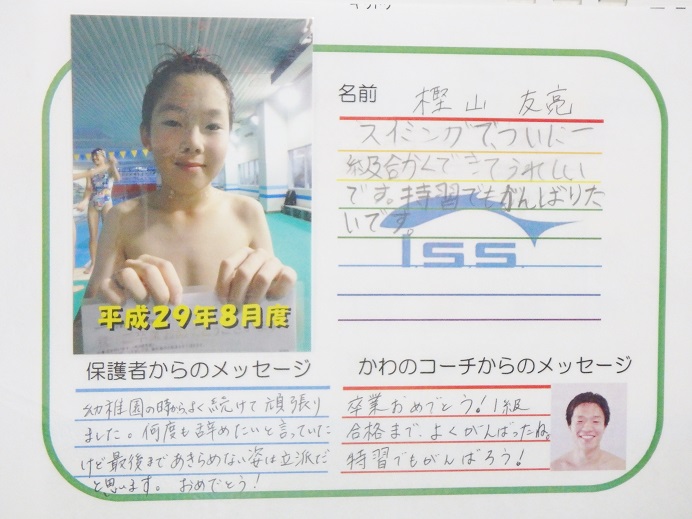 平成29年8月度
名前 樫山 友亮
スイミングで、ついに一
級合かくできてうれしい
です。特習でもがんばりた
いです。
I.S.S.
保護者からのメッセージ
幼稚園の時からよく続けて頑張り
ました。何度も辞めたいと言っていた
けど最後まであきらめない姿は立派だ
と思います。おめでとう！
かわのコーチからのメッセージ
卒業おめでとう！1級
合格まで、よくがんばったね。
特習でもがんばろう！